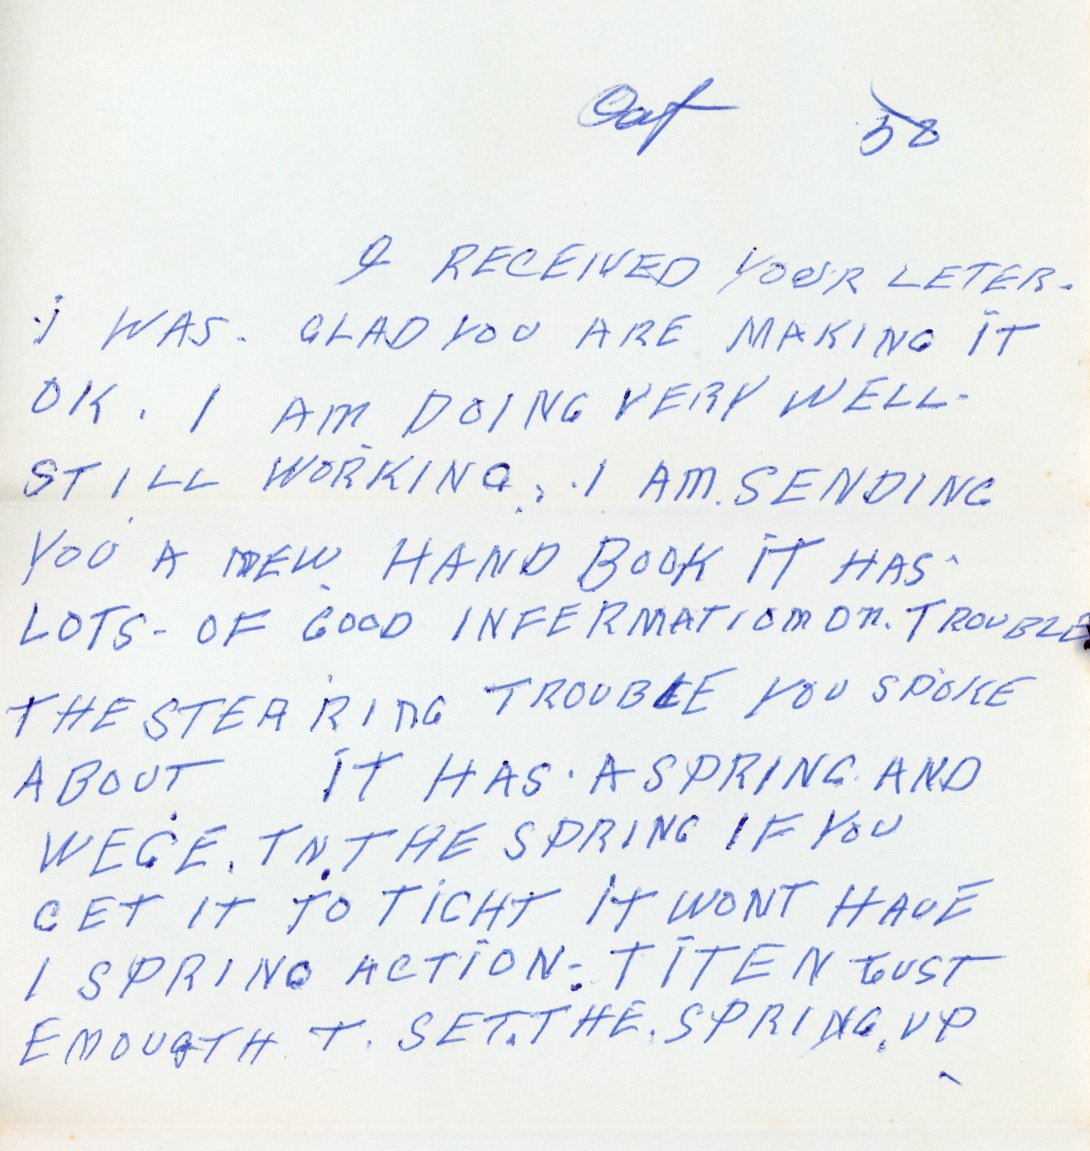 Oct 58
I RECEIVED YOUR LETER.
I WAS. GLAD YOU ARE MAKING IT
OK. I AM DOING VERY WELL-
STILL WORKING, I AM SENDING
YOU A NEW HAND BOOK IT HAS
LOTS- OF GOOD INFERMATION ON. TROUBLE
THE STEARING TROUBLE YOU SPOKE
ABOUT IT HAS. A SPRING AND
WEGE. IN THE SPRING IF YOU
GET IT TO TIGHT IT WONT HAVE
I SPRING ACTION- TITEN GUST
ENOUGTH T. SET. THE. SPRING. UP